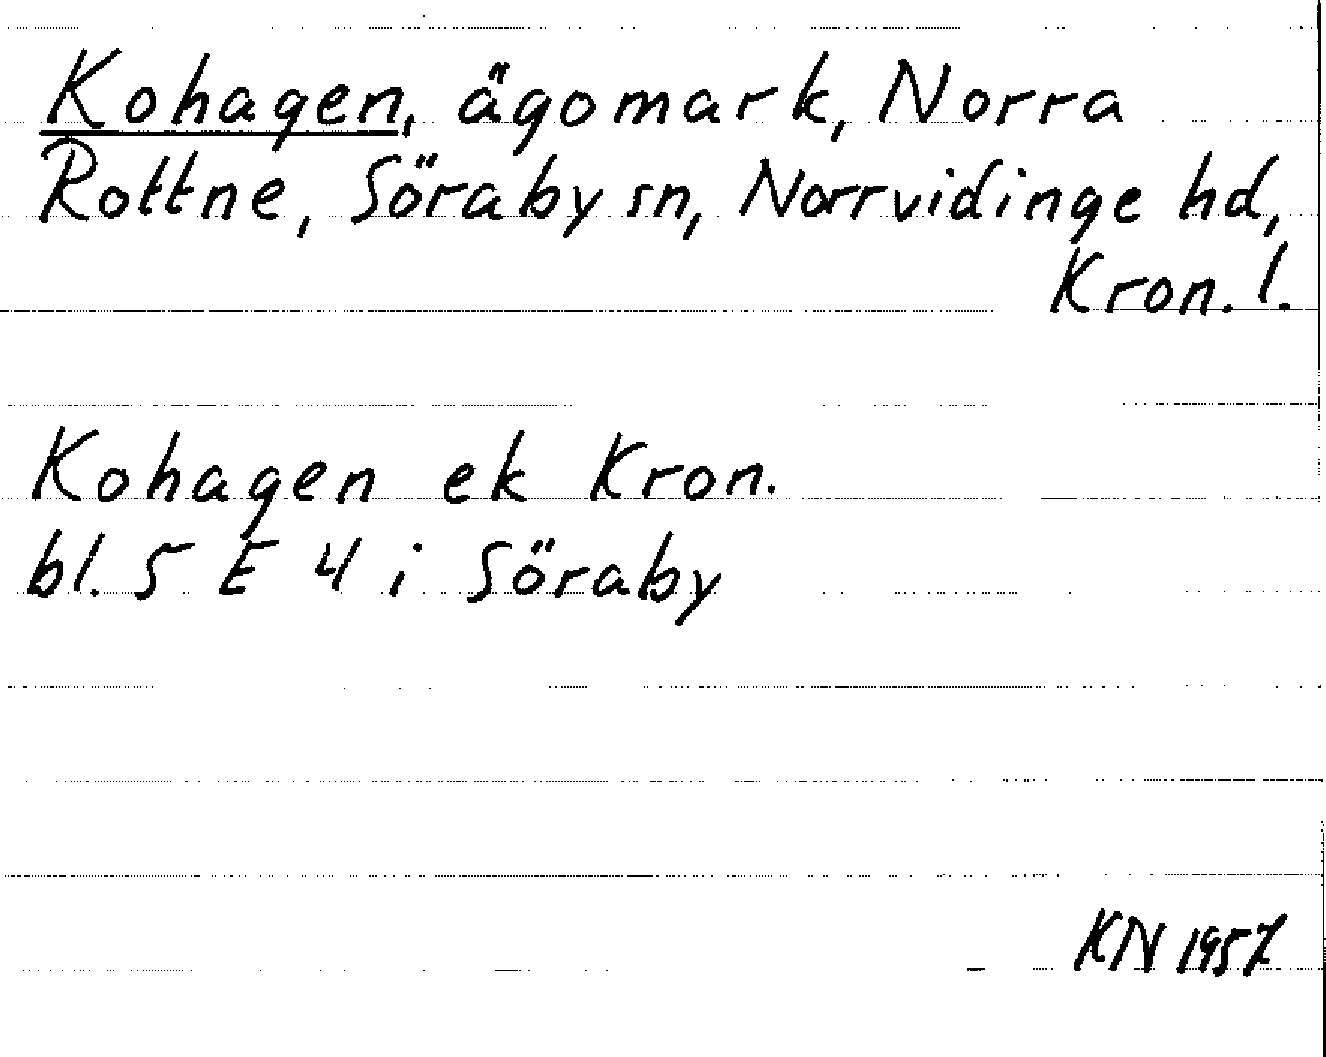 Kohagen, ägomark, Norra
Rottne, Söraby sn, Norrvidinge hd,
Kron. l.
Kohagen ek Kron.
bl. 5 E 4 i Söraby
KN 1957